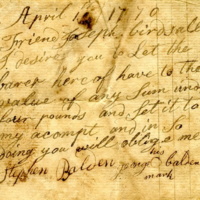 April 12 1770
Friend Joseph birdsall
I desire you to Let the
barer here of have to the
value of any Sum under
four pounds and Set it to
my acompt and in So
doing you will oblige me
his
Stephen Balden
mark